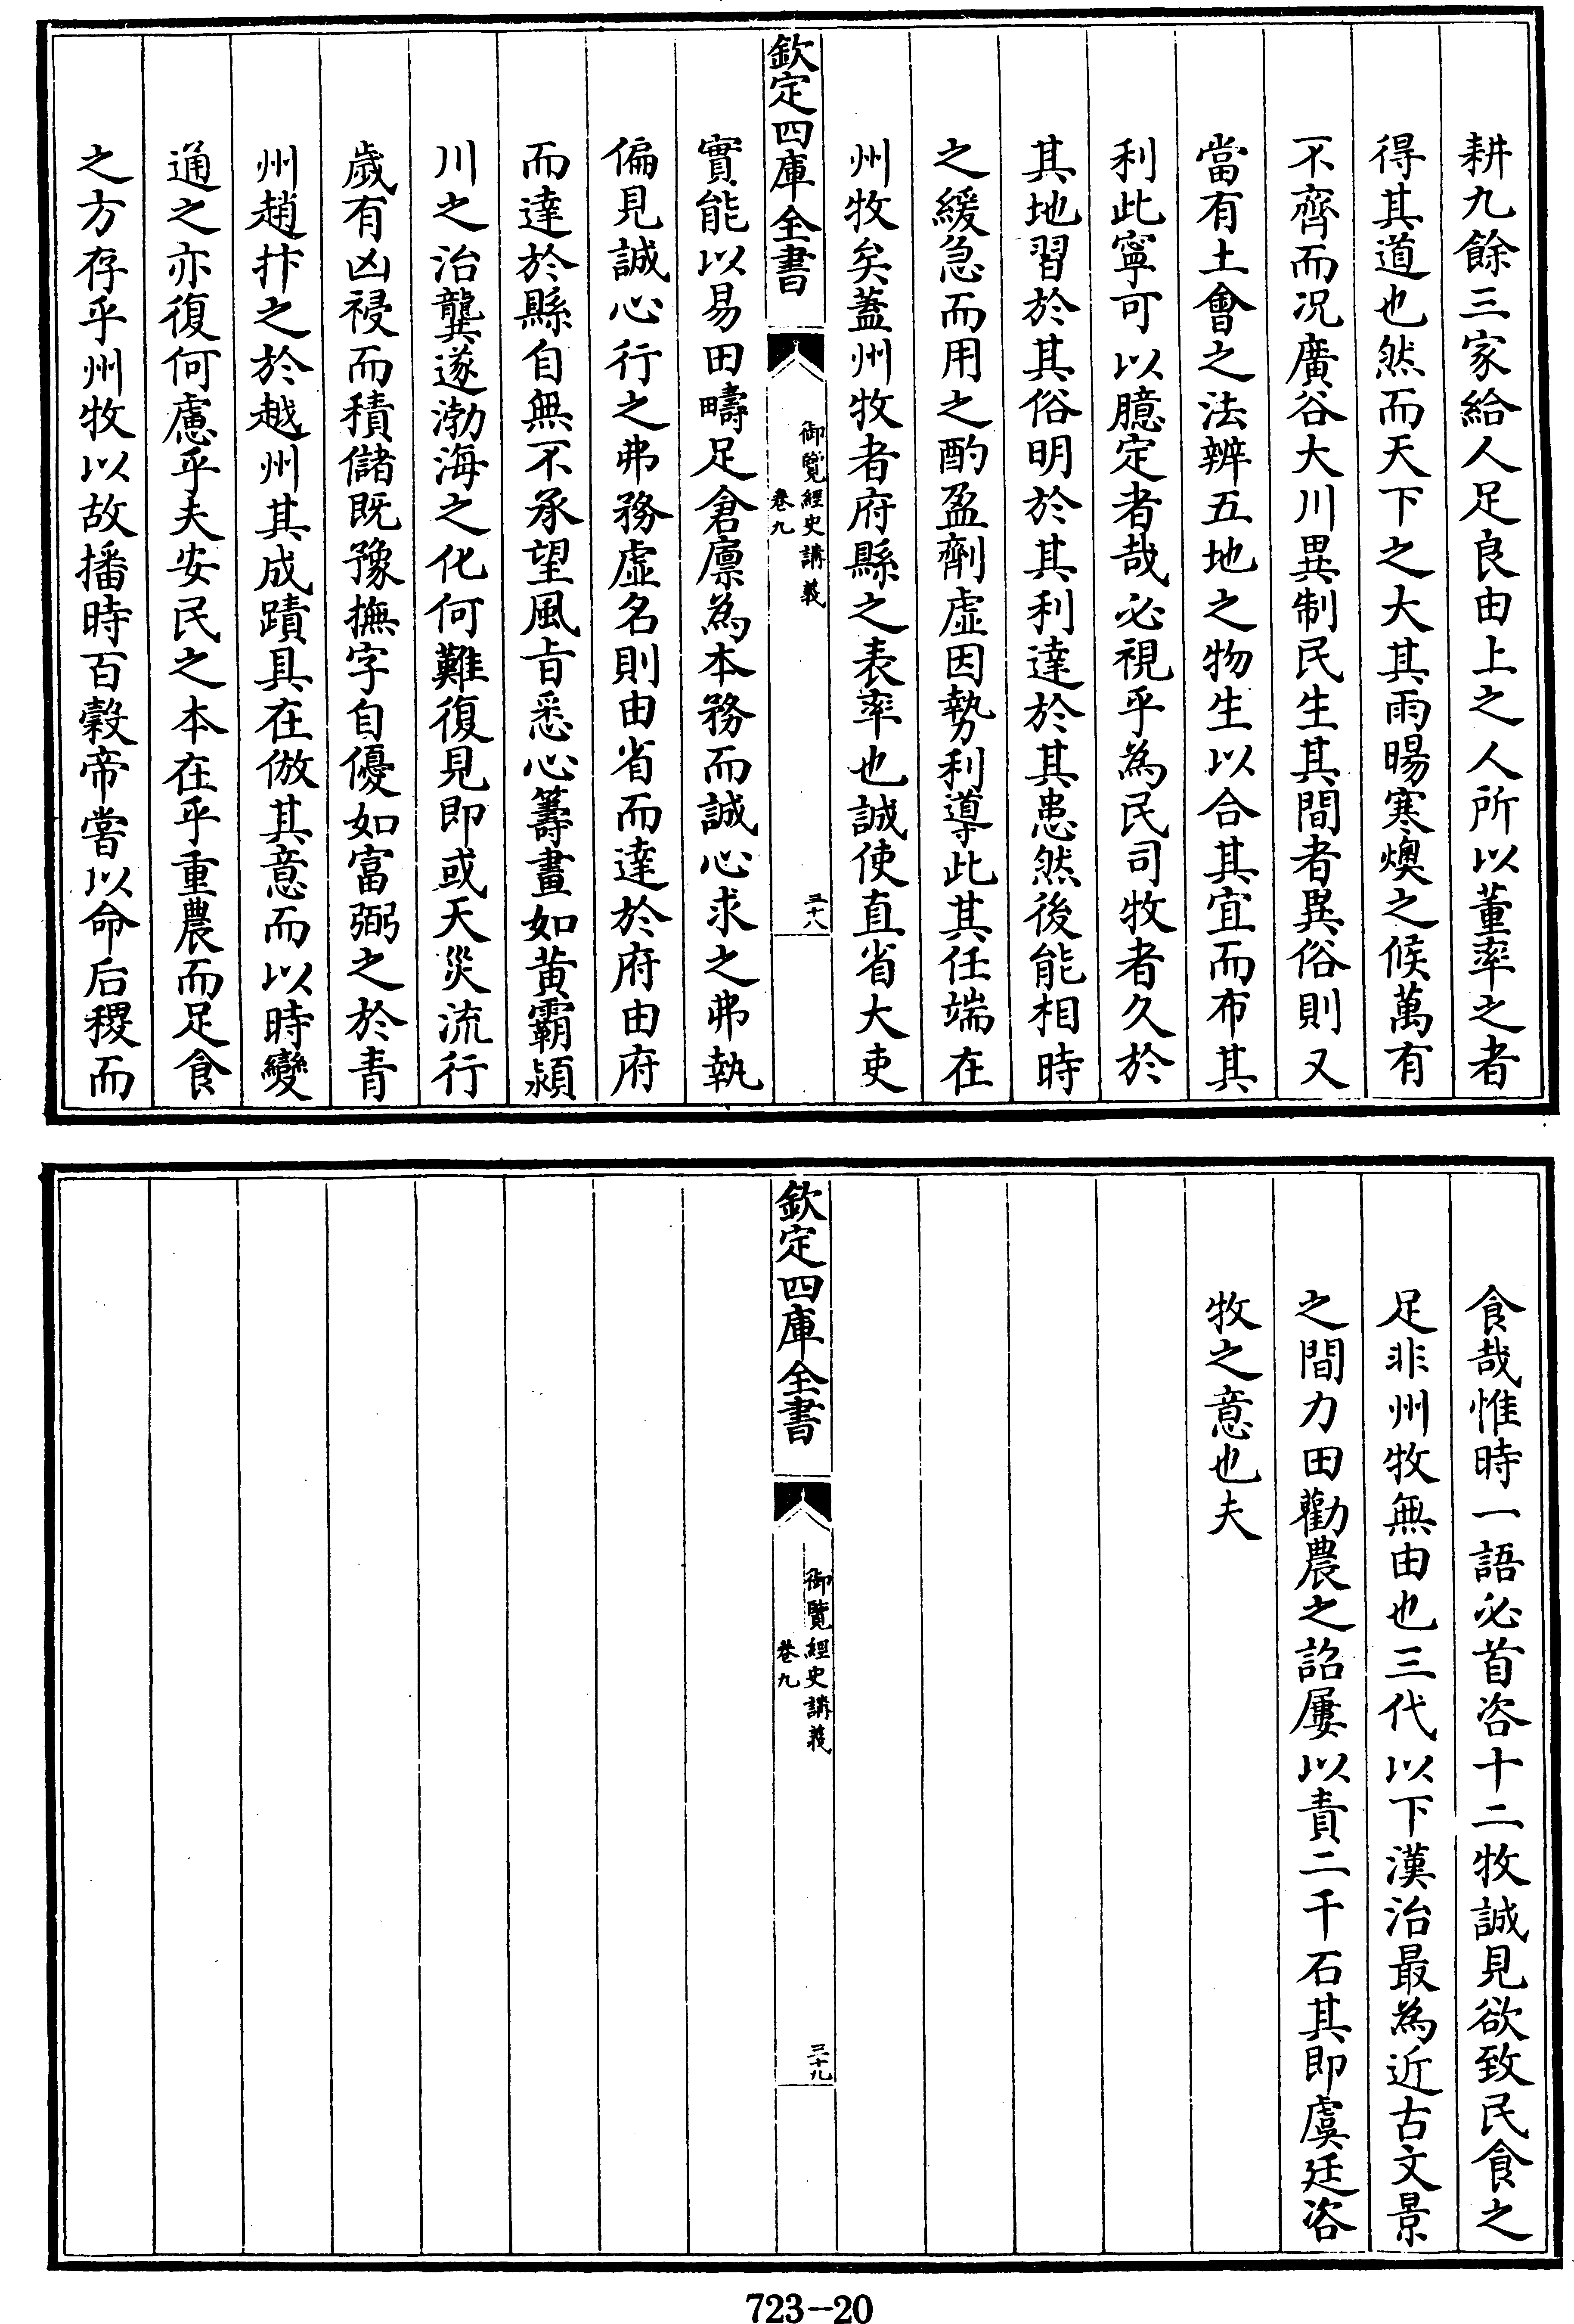 耕九餘三家給人足良由上之人所以董率之者
得其道也然而天下之大其雨暘寒燠之候萬有
不齊而况廣谷大川異制民生其間者異俗則又
當有土會之法辨五地之物生以合其宜而布其
利此寧可以臆定者哉必視乎為民司牧者久於
其地習於其俗明於其利達於其患然後能相時
之緩急而用之酌盈劑虛因勢利導此其任端在
州牧矣蓋州牧者府縣之表率也誠使直省大吏
欽定四庫全書
御覽經史講義
卷九
三十八
實能以易田疇足倉廪為本務而誠心求之弗執
偏見誠心行之弗務虛名則由省而達於府由府
而達於縣自無不承望風㫖悉心籌畫如黄霸潁
川之治龔遂渤海之化何難復見即或天災流行
歲有凶祲而積儲既豫撫字自優如富弼之於青
州趙抃之於越州其成蹟具在倣其意而以時變
通之亦復何慮乎夫安民之本在乎重農而足食
之方存乎州牧以故播時百穀帝嘗以命后稷而
食哉惟時一語必首咨十二牧誠見欲致民食之
足非州牧無由也三代以下漢治最為近古文景
之間力田勸農之詔屢以責二千石其即虞廷咨
牧之意也夫
欽定四庫全書
御覽經史講義
卷九
三十九
723-20